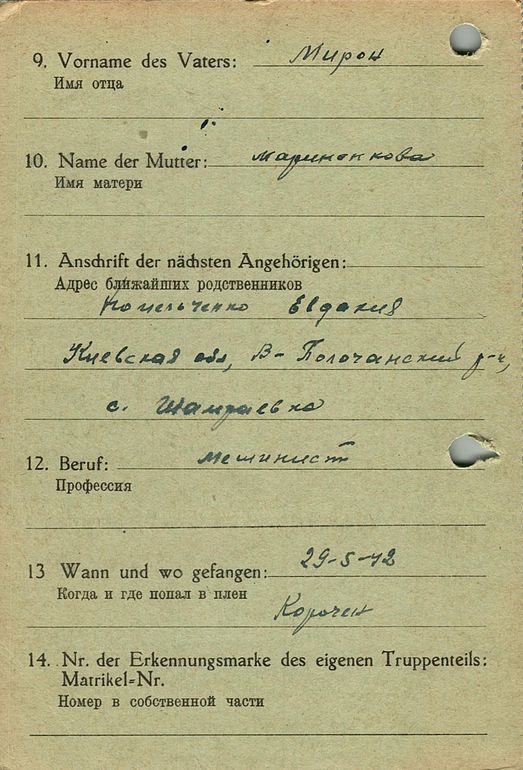 9. Vorname des Vaters: Мирон
Имя отца
10. Name der Mutter: Мариненкова
Имя матери
11. Anschrift der nächsten Angehörigen:
Адрес ближайших родственников
Евдакия
Киевская обл, В-Полочанский р-н,
с. Шамраевка
12. Beruf: мешинист
Профессия
13 Wann und wo gefangen: 29-5-42
Когда и где попал в плен
Корочен
14. Nr. der Erkennungsmarke des eigenen Truppenteils:
Matrikel-Nr.
Номер в собственной части